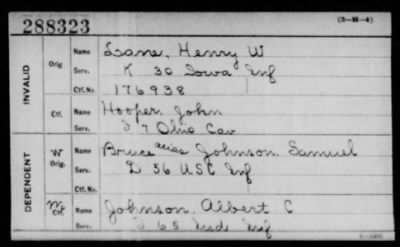 288323
(3-M-4)
INVALID
Orig
Name Lane, Henry W
Serv. K 30 Iowa Inf
Ctf. No. 176938
Ctf.
Name Hooper, John
Serv. 7 Ohio Cav
DEPENDENT
W
Orig.
Name Bruce alias Johnson, Samuel
Serv. D 56 USC Inf
Ctf. No.
M
Ctf.
Name Johnson, Albert C
Serv. 65 Ind Inf